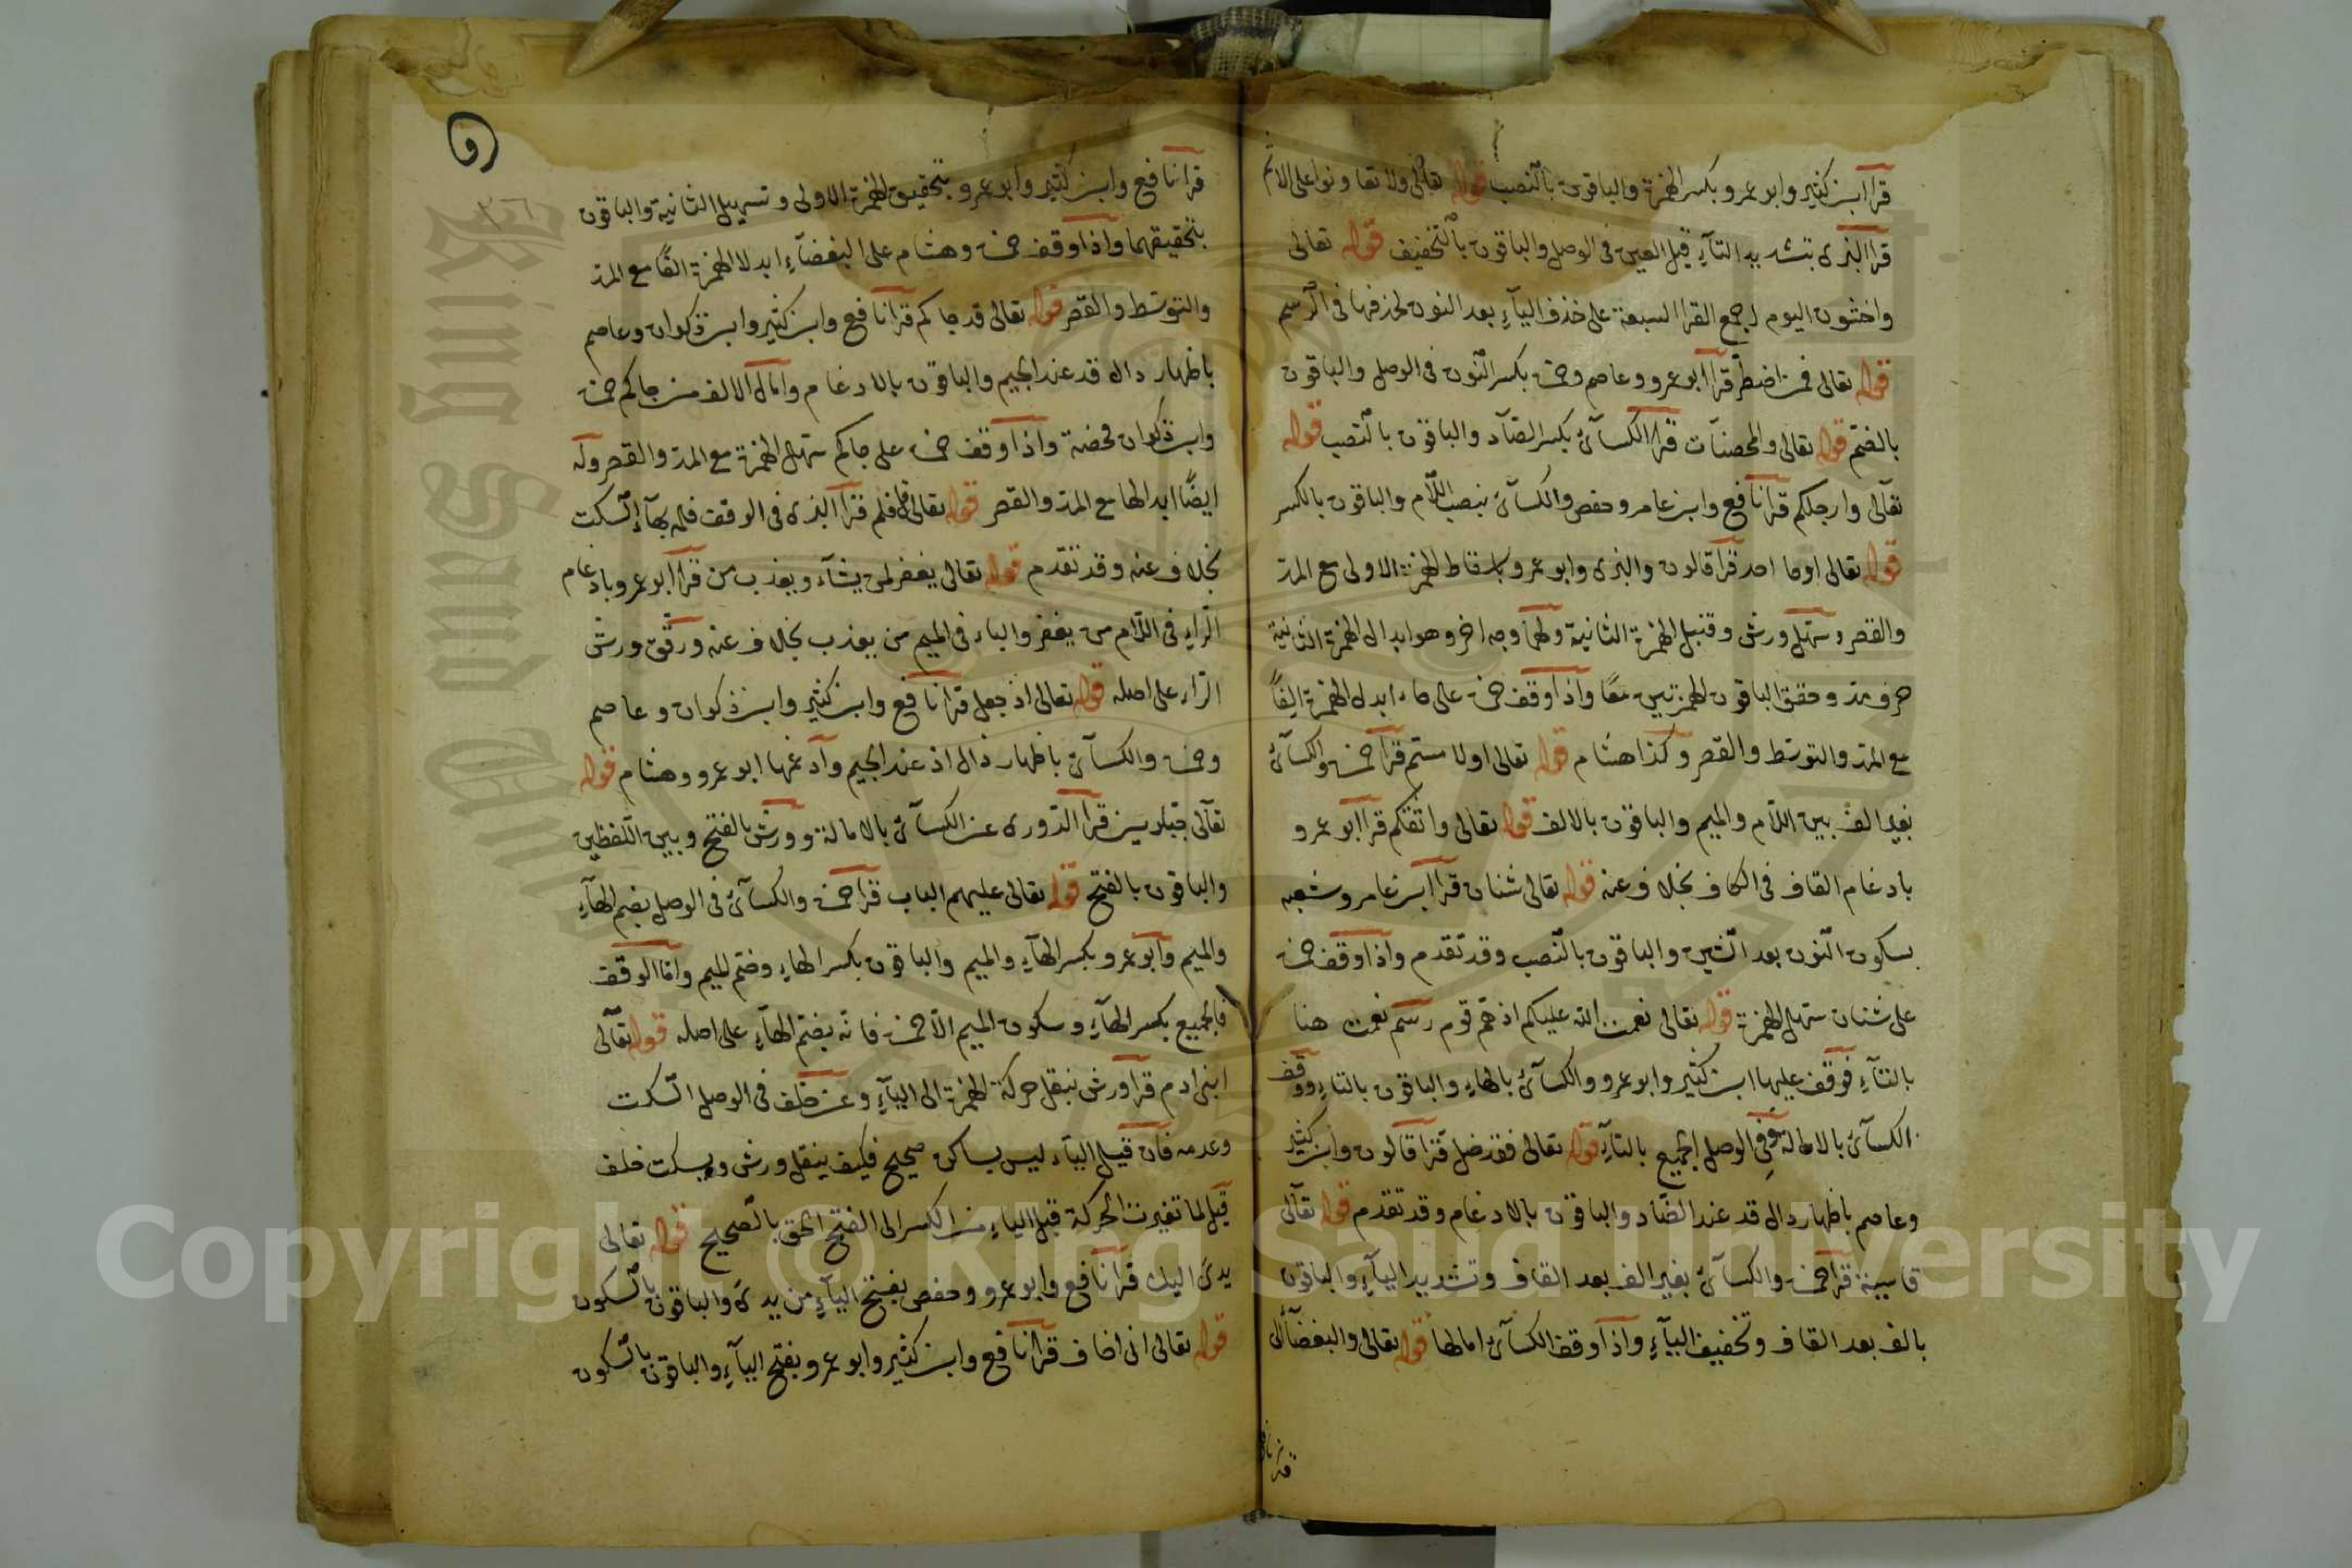 قرا ابن كثير وابو عمرو بكسر الهمزة والباقون بالنصب قوله تعالى ولا تعاونوا على الاثم
قرا البزى بتشديد التآء قبل العين فى الوصل والباقون بالتخفيف قوله تعالى
واخشون اليوم اجمع القرا السبعة على خذف اليآء بعد النون لحذفها فى الرسم
قوله تعالى فمن اضطر قرا ابو عمرو وعاصم وحمزة بكسر النون فى الوصل والباقون
بالضم قوله تعالى والمحصنات قرا الكسآئ بكسر الصآد والباقون بالنصب قوله
تعالى وارجلكم قرا نافع وابن عامر وحفص والكسآئ بنصب اللام والباقون بالكسر
قوله تعالى اوجا احد قرا قالون والبزى وابو عمرو باسقاط الهمزة الاولى مع المد
والقصر وسهل ورش وقنبل الهمزة الثانية ولهما وجه اخر وهو ابدال الهمزة الثانية
حرف مد وحقق الباقون الهمزتين معًا واذا وقف حمزة على جاء ابدل الهمزة الفًا
مع المد والتوسط والقصر وكذا هشام قوله تعالى اولا مستم قرا حمزة والكسآئ
بغير الف بين اللام والميم والباقون بالالف قوله تعالى واثقكم قرا ابو عمرو
بادغام القاف فى الكاف بخلاف عنه قوله تعالى شنان قرا ابن عامر وشعبه
بسكون النون بعد الشين والباقون بالنصب وقد تقدم واذا وقف حمزة
على شنان سهل الهمزة قوله تعالى نعمت الله عليكم اذ هم قوم رسم نعمت هنا
بالتآء فوقف عليها ابن كثير وابو عمرو والكسآئ بالهاء والباقون بالتاء ووقف
الكسآئ بالامالة وفى الوصل الجميع بالتآء قوله تعالى فقد ضل قرا قالون وابن كثير
وعاصم باظهار دال قد عند الضاد والباقون بالادغام وقد تقدم قوله تعالى
قاسية قرا حمزة والكسآئ بغير الف بعد القاف وتشديد اليآء والباقون
بالف بعد القاف وتخفيف اليآء واذا وقف الكسآئ امالها قوله تعالى والبغضآء الى
قرا نافع
و
٣٦
قرا نافع وابن كثير وابو عمرو بتحقيق الهمزة الاولى وتسهيل الثانية والباقون
بتحقيقهما واذا وقف حمزة وهشام على البغضآء ابدلا الهمزة الفًا مع المد
والتوسط والقصر قوله تعالى قد جاكم قرا نافع وابن كثير وابن ذكوان وعاصم
باظهار دال قد عند الجيم والباقون بالادغام وامال الالف من جاكم حمزة
وابن ذكوان محضة واذا وقف حمزة على جاكم سهل الهمزة مع المد والقصر وله
ايضًا ابدالها مع المد والقصر قوله تعالى قل فلم قرا البزى فى الوقف فلمه بهآء السكت
بخلاف عنه وقد تقدم قوله تعالى يغفر لمن يشآء ويعذب من قرا ابو عمرو بادغام
الراء فى اللام من يغفر والباء فى الميم من يعذب بخلاف عنه ورقق ورش
الراء على اصله قوله تعالى اذ جعل قرا نافع وابن كثير وابن ذكوان وعاصم
وحمزة والكسآئ باظهار ذال اذ عند الجيم وادغمها ابو عمرو وهشام قوله
تعالى جبارين قرا الدورى عن الكسآئ بالامالة وورش بالفتح وبين اللفظين
والباقون بالفتح قوله تعالى عليهم الباب قرا حمزة والكسآئ فى الوصل بضم الهآء
والميم وابو عمرو بكسر الهآء والميم والباقون بكسر الهاء وضم الميم واما الوقف
فالجميع بكسر الهآء وسكون الميم الا حمزة فانه يضم الهآء على اصله قوله تعالى
ابنى ادم قرا ورش بنقل حركة الهمزة الى اليآء وعن خلف فى الوصل السكت
وعدمه فان قيل اليآء ليس بساكن صحيح فكيف ينقل ورش ويسكت خلف
قيل لما تغيرت الحركة قبل الياء من الكسر الى الفتح الحق بالصحيح قوله تعالى
يدى اليك قرا نافع وابو عمرو وحفص بفتح اليآء من يدى والباقون بالسكون
قوله تعالى انى اخاف قرا نافع وابن كثير وابو عمرو بفتح اليآء والباقون بالسكون
Copyright © King Saud University